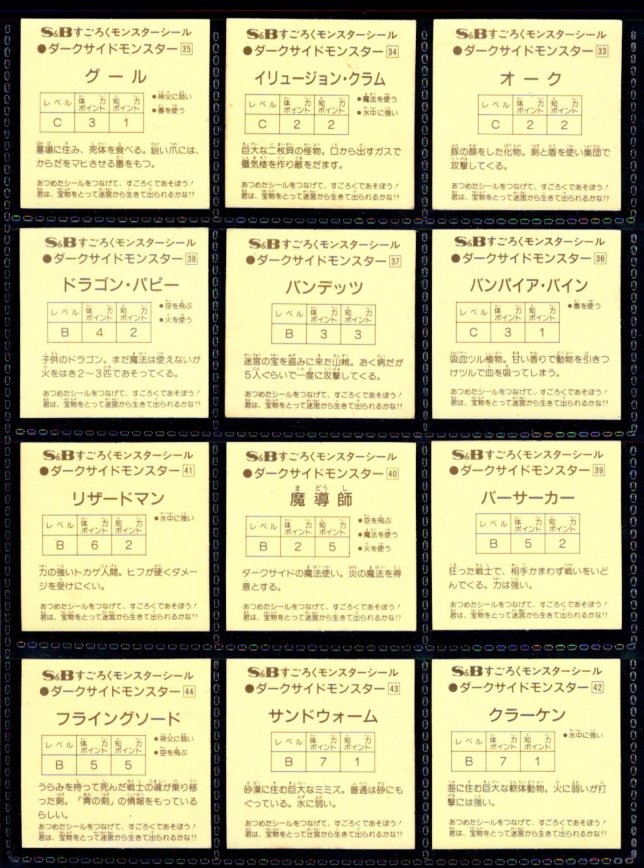 S&Bすごろくモンスターシール
●ダークサイドモンスター 35
グール
レベル 体力ポイント 知力ポイント
C 3 1
●神父に弱い
●毒を使う
墓場に住み、死体を食べる。鋭い爪には、
からだをマヒさせる毒をもつ。
あつめたシールをつなげて、すごろくであそぼう!
君は、宝物をとって迷宮から生きて出られるかな!?
S&Bすごろくモンスターシール
●ダークサイドモンスター 34
イリュージョン・クラム
レベル 体力ポイント 知力ポイント
C 2 2
●魔法を使う
●水中に強い
巨大な二枚貝の怪物。口から出すガスで
蜃気楼を作り敵をだます。
あつめたシールをつなげて、すごろくであそぼう!
君は、宝物をとって迷宮から生きて出られるかな!?
S&Bすごろくモンスターシール
●ダークサイドモンスター 33
オーク
レベル 体力ポイント 知力ポイント
C 2 2
豚の顔をした化物。剣と盾を使い集団で
攻撃してくる。
あつめたシールをつなげて、すごろくであそぼう!
君は、宝物をとって迷宮から生きて出られるかな!?
S&Bすごろくモンスターシール
●ダークサイドモンスター 38
ドラゴン・パピー
レベル 体力ポイント 知力ポイント
B 4 2
●空を飛ぶ
●火を使う
子供のドラゴン。まだ魔法は使えないが
火をはき2〜3匹でおそってくる。
あつめたシールをつなげて、すごろくであそぼう!
君は、宝物をとって迷宮から生きて出られるかな!?
S&Bすごろくモンスターシール
●ダークサイドモンスター 37
バンデッツ
レベル 体力ポイント 知力ポイント
B 3 3
迷宮の宝を盗みに来た山賊。おく病だが
5人ぐらいで一度に攻撃してくる。
あつめたシールをつなげて、すごろくであそぼう!
君は、宝物をとって迷宮から生きて出られるかな!?
S&Bすごろくモンスターシール
●ダークサイドモンスター 36
バンパイア・バイン
レベル 体力ポイント 知力ポイント
C 3 1
●毒を使う
吸血ツル植物。甘い香りで動物を引きつ
けツルで血を吸ってしまう。
あつめたシールをつなげて、すごろくであそぼう!
君は、宝物をとって迷宮から生きて出られるかな!?
S&Bすごろくモンスターシール
●ダークサイドモンスター 41
リザードマン
レベル 体力ポイント 知力ポイント
B 6 2
●水中に強い
力の強いトカゲ人間。ヒフが硬くダメー
ジを受けにくい。
あつめたシールをつなげて、すごろくであそぼう!
君は、宝物をとって迷宮から生きて出られるかな!?
S&Bすごろくモンスターシール
●ダークサイドモンスター 40
魔導師
レベル 体力ポイント 知力ポイント
B 2 5
●空を飛ぶ
●魔法を使う
●火を使う
ダークサイドの魔法使い。炎の魔法を得
意とする。
あつめたシールをつなげて、すごろくであそぼう!
君は、宝物をとって迷宮から生きて出られるかな!?
S&Bすごろくモンスターシール
●ダークサイドモンスター 39
バーサーカー
レベル 体力ポイント 知力ポイント
B 5 2
狂った戦士で、相手かまわず戦いをいど
んでくる。力は強い。
あつめたシールをつなげて、すごろくであそぼう!
君は、宝物をとって迷宮から生きて出られるかな!?
S&Bすごろくモンスターシール
●ダークサイドモンスター 44
フライングソード
レベル 体力ポイント 知力ポイント
B 5 5
●神父に弱い
●空を飛ぶ
うらみを持って死んだ戦士の魂が乗り移
った剣。「青の剣」の情報をもっている
らしい。
あつめたシールをつなげて、すごろくであそぼう!
君は、宝物をとって迷宮から生きて出られるかな!?
S&Bすごろくモンスターシール
●ダークサイドモンスター 43
サンドウォーム
レベル 体力ポイント 知力ポイント
B 7 1
砂漠に住む巨大なミミズ。普通は砂にも
ぐっている。水に弱い。
あつめたシールをつなげて、すごろくであそぼう!
君は、宝物をとって迷宮から生きて出られるかな!?
S&Bすごろくモンスターシール
●ダークサイドモンスター 42
クラーケン
レベル 体力ポイント 知力ポイント
B 7 1
●水中に強い
海に住む巨大な軟体動物。火に弱いが打
撃には強い。
あつめたシールをつなげて、すごろくであそぼう!
君は、宝物をとって迷宮から生きて出られるかな!?